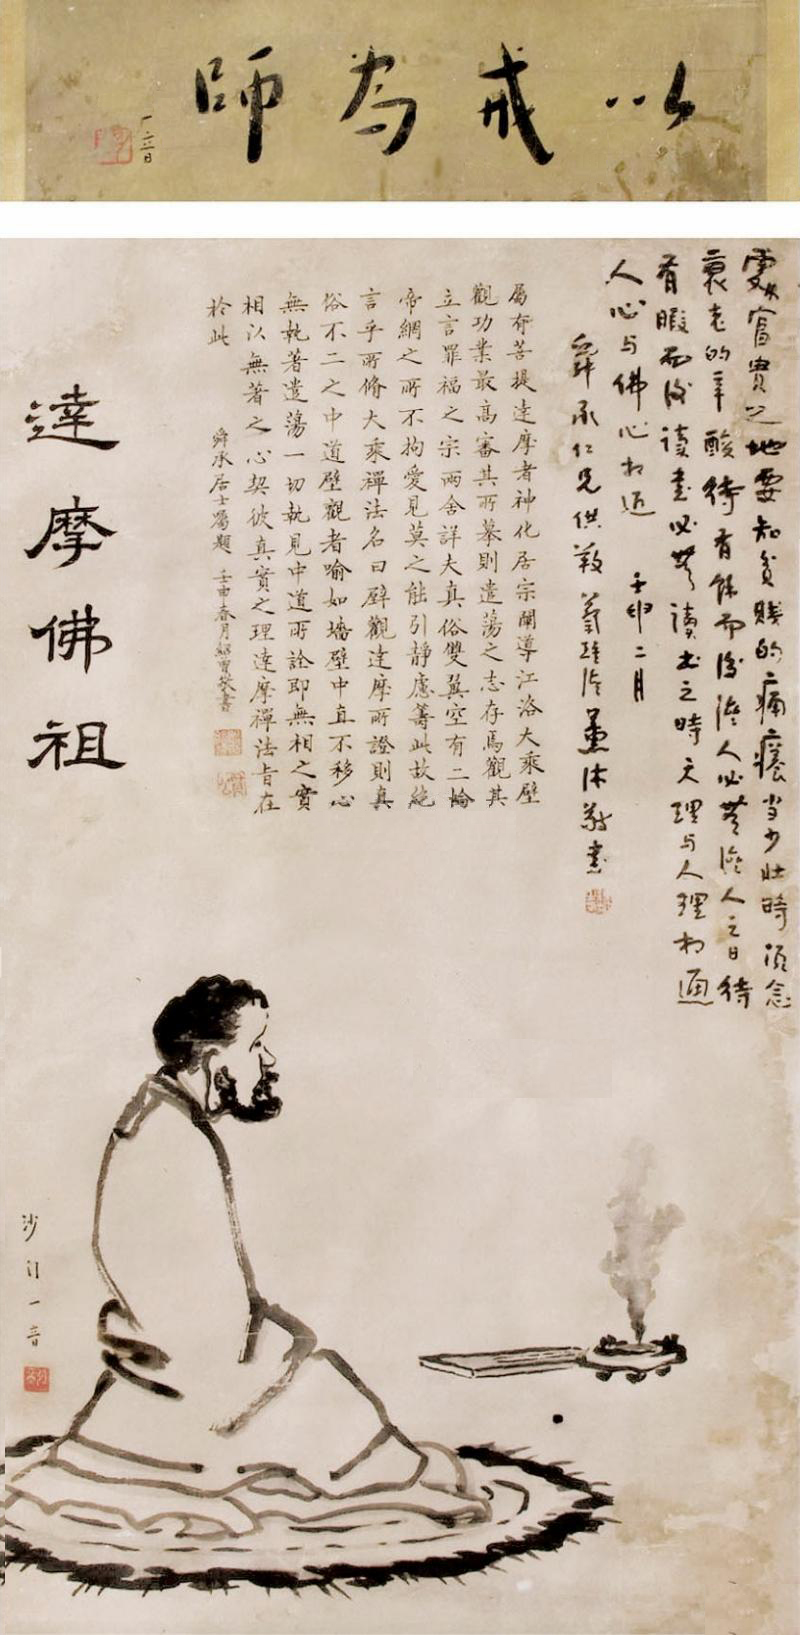 以戒為師
一音
處富貴之地要知貧賤的痛癢當少壯時須念
衰老的辛酸待有餘而後濟人必無濟人之日待
有暇而後讀書必無讀書之時天理與人理相通
人心与佛心相近
壬申二月
舜承仁兄供 敬書
屬有菩提達摩者神化居宗闡導江洛大乘壁
觀功業最高審其所慕則遣蕩之志存焉觀其
立言罪福之宗兩舍詳夫真俗雙翼空有二輪
帝網之所不拘愛見莫之能引靜慮籌此故絕
言乎所脩大乘禪法名曰壁觀達摩所證則真
俗不二之中道壁觀者喻如墻壁中直不移心
無執著遣蕩一切執見中道所詮即無相之實
相以無著之心契彼真實之理達摩禪法旨在
於此
舜承居士屬題 壬申春月 敬書
達摩佛祖
沙門一音